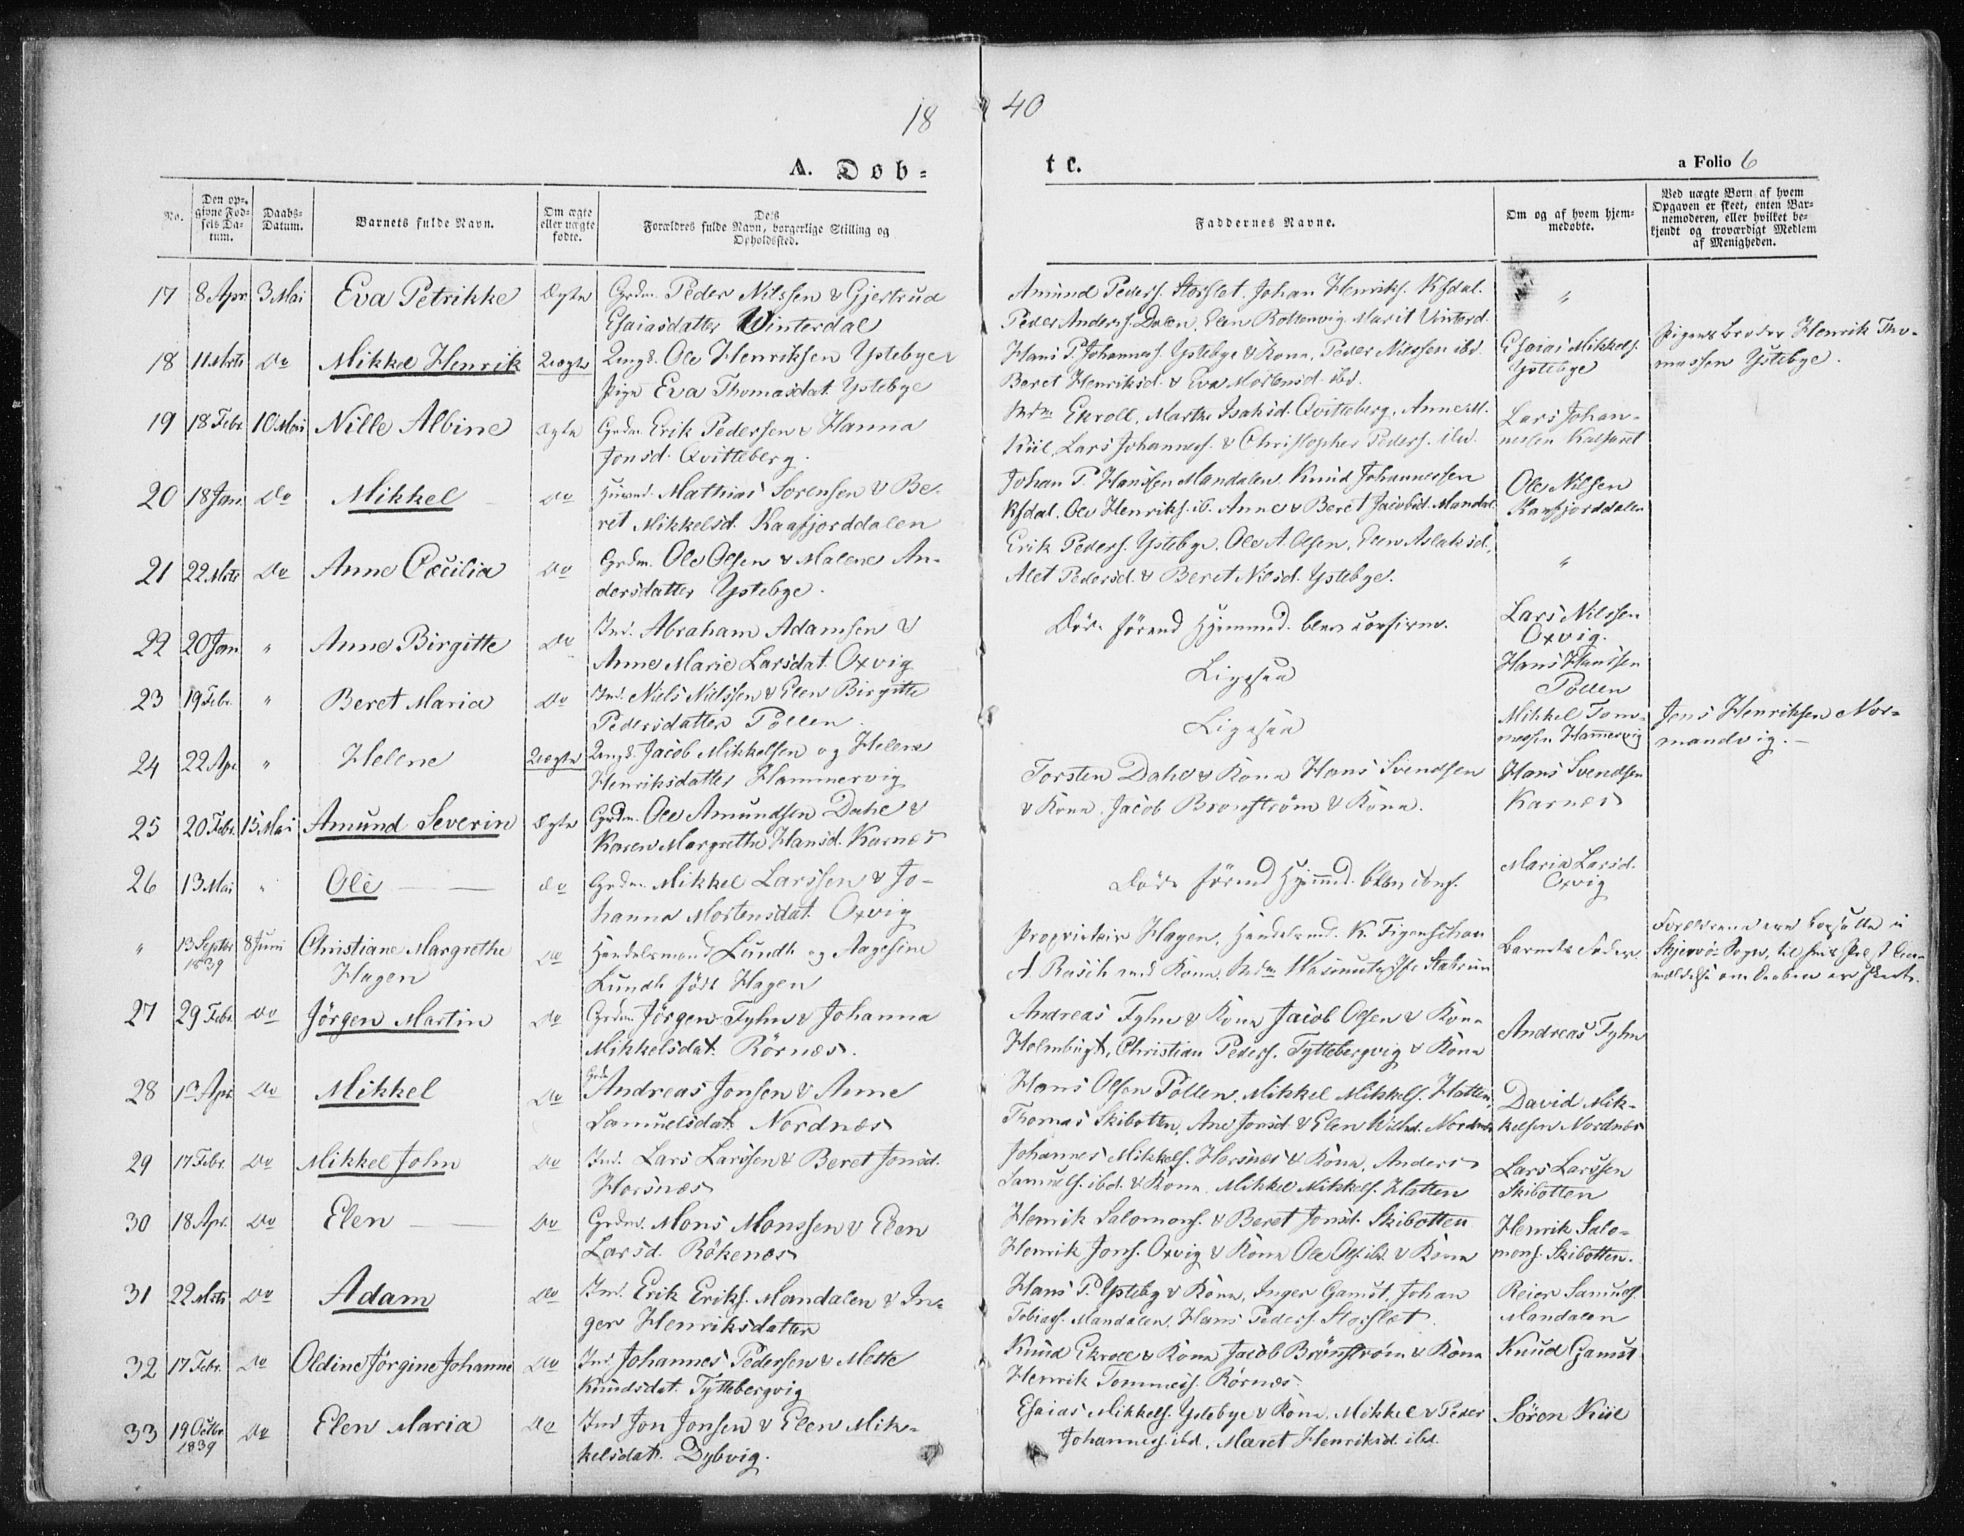 18
40
A. Döb-
te.
a Folio 6
No.
Den op-
givne Fød-
sels Da-
tum.
Daabs-
Datum.
Barnets fulde Navn.
Om ægte
eller uægte
fødte.
Dets
Forældres fulde Navn, borgerlige Stilling og
Opholdssted.
Faddernes Navne.
Om og af hvem hjem-
medøbte.
Ved uægte Børn af hvem
Opgaven er skeet, enten Bar-
nemoderen, eller hvilket be-
kjendt og troværdigt Medlem
af Menigheden.
17 8 Apr 3 Mai Eva Petrikke Ægte Grdm. Peder Nilssen & Gjertrud
Esaiasdatter Winterdal
Amund Peders. Storslet. Johan Henriks. Kfdal.
Peder Anders. Dalen, Elen Rottenvig. Marit Vinterd.
"
18 11 Mrts Do Mikkel Henrik Uægte Ungk. Ole Henriksen Ystebye &
Pige Eva Thomasdat. Ystebye
Hans P. Johanness. Ystebye & Kone, Peder Nilssen ibd.
Beret Henriksd. & Eva Mortensd. ibd.
Esaias Mikkels.
Ystebye
Pigens broder Henrik Tho-
massen Ystebye.
19 18 Febr 10 Mai Nille Albine Ægte Grdm. Erik Pedersen & Hanna
Jonsd. Qvitteberg.
Ekroll, Marthe Isaksd. Qvitteberg, Anne M.
Kiil, Lars Johanness. & Christopher Peders. ibd.
Lars Johan-
nesen
20 18 Jan. Do Mikkel Do Mathias Sørensen & Be-
ret Mikkelsd. Kaafjorddalen
Johan P. Hanssen Mandalen. Knud Johannessen
Kfdal. Ole Henriks. ib. Anne & Beret Jacobsd. Mandal.
Ole Nilsen
Kaafjorddalen
21 22 Mrts Do Anne Cæcilia Do Grdm. Ole Olsen & Malene An-
dersdatter Ystebye.
Erik Peders. Ystebye, Ole A. Olsen, Elen Aslaksd,
Alet Pedersd. & Beret Nilsd. Ystebye.
"
22 20 Jan " Anne Birgitte Do Ind. Abraham Adamsen &
Anne Marie Larsdat. Oxvig
Døde førend Hjemmed. blev confirm.
Lars Nilssen
Oxvig.
23 19 Febr. " Beret Maria Do Ind. Niels Nielssen & Elen Birgitte
Pedersdatter Pollen.
Ligesaa
Hans Hanssen
Pollen
24 22 Apr. " Helene Uægte Ungk. Jacob Mikkelsen og Helene
Henriksdatter Hammervig
Ligesaa
Mikkel Tom-
mesen Hammervig
Jens Henriksen Nor-
mandvig.-
25 20 Febr. 15 Mai Amund Severin Ægte Grdm. Ole Amundsen Dahl &
Karen Margrethe Hansd. Karnæs
Torsten Dahl & Kone Hans Svendsen
& Kone. Jacob Brønstrøm & Kone.
Hans Svendsen
Karnæs
26 13 Mai " Ole Do Grdm. Mikkel Larssen & Jo-
hanna Mortensdat. Oxvig
Døde førend Hjemmd. blev conf.
Maria Larsd.
Oxvig
" 13 Septbr 8 Juni Christiane Margrethe Do Handelsmand Lundh og Aagesine
1839
Hagen
Lundh født Hagen
Proprietair Hagen, Handelsmd. K. Figenschau
A. Rasch med Kone,
Barnets Fader.
Forældrene ere bosatte i
27 29 Febr. Do Jørgen Martin Do Grdm. Jørgen Fyhn & Johanna
Mikkelsdat. Rørnæs.
Andreas Fyhn & Kone Jacob Olsen & Kone
Holmbugt, Christian Peders. Tyttebergvig & Kone
Andreas Fyhn
28 Apr. Do Mikkel Do Grdm Andreas Jonsen & Anne
Samuelsdat. Nordnæs
Hans Olsen Pollen, Mikkel Mikkels. Hatten,
Thomas Skibotten, Ane Jonsd. & Elen Nordnæs
David Mik-
kelsen Nordnæs
29 17 Febr. Do Mikkel John Do Ind. Lars Larssen & Beret Jonsd.
Horsnæs
Johannes Mikkels. Horsnæs & Kone, Anders
Samuels. ibd. & Kone. Mikkel Mikkels. Hatten
Lars Larssen
Skibotten
30 18 Apr. Do Elen Do Grdm. Mons Monssen & Elen
Larsd. Røkenæs
Henrik Salomons. & Beret Jonsd. Skibotten
Henrik Jons. Oxvig & Kone Ole Ols. ibd. & Kone
Henrik Salo-
mons. Skibotten.
31 22 Mrts Do Adam Do Ind. Erik Eriks. Mandalen & In-
ger Henriksdatter
Hans P. Ysteby & Kone, Inger Gamst, Johan
Tobias. Mandalen, Hans Peders. Storslet.
Reier Samuels.
Mandalen
32 17 Febr. Do Oldine Jørgine Johanne Do Ind Johannes Pedersen & Mette
Knudsdat. Tyttebergvig
Knud Ekroll & Kone Jacob Brønstrøm & Kone
Henrik Tommess. Rørnæs.
Knud Gamst
33 19 Octbr. Do Elen Maria Do Ind Jon Jonsen & Elen Mik-
1839
kelsdat. Dybvig.
Esaias Mikkels. Ystebye & Kone, Mikkel & Peder
Johanness. ibd, Maret Henriksd. ibd.
Søren Kiil